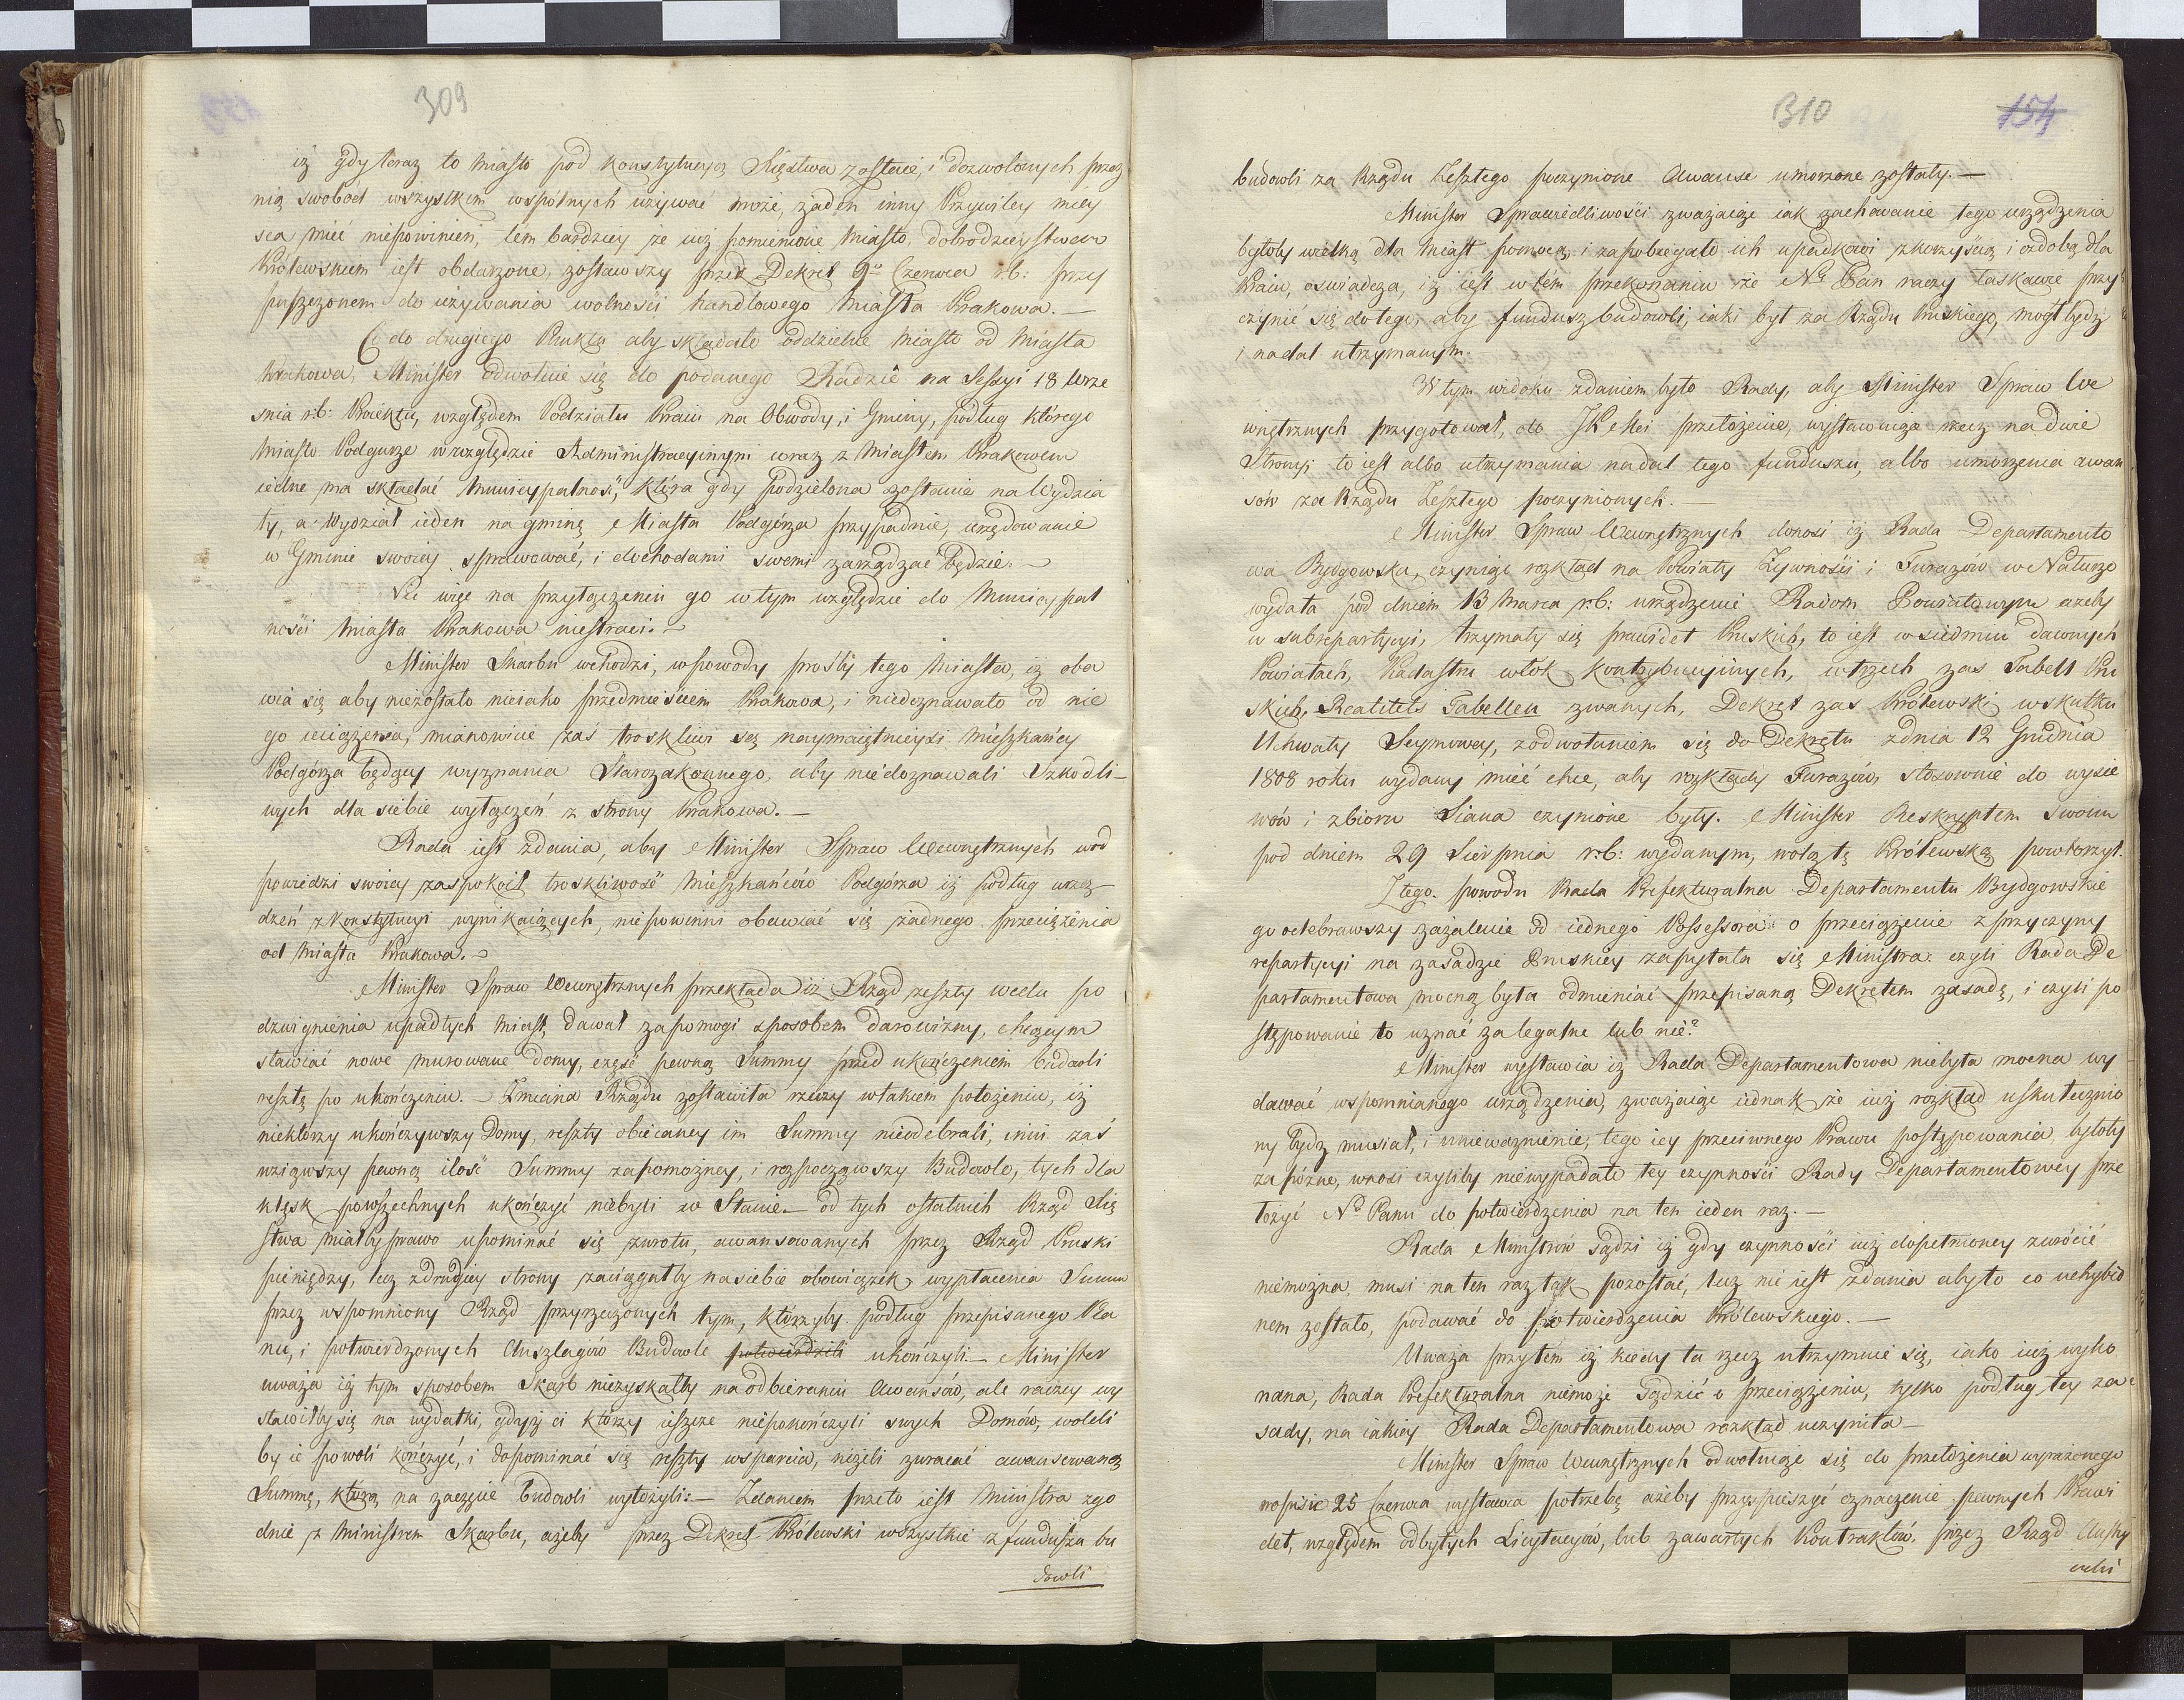 309
iż gdy teraz to Miasto pod Konstytucyą Xięstwa zostaie, i dozwolonych przez
nią swobód wszystkim wspólnych używać może, żaden inny Przywiley miey
sca mieć niepowinien, tem bardziey że iuż pomienione Miasto, dobrodzieystwem
Królewskiem iest obdarzone, zostawszy przez Dekret 9º Czerwca r.b: przy
puszczonem do używania wolności handlowego Miasta Krakowa.—
Co do drugiego Punktu aby składało oddzielne Miasto od Miasta
Krakowa, Minister odwołuie się do podanego Radzie na Sessyi 18 Wrze
śnia r.b: Proiektu, względem Podziału Kraiu na Obwody, i Gminy, podług którego
Miasto Podgurze w względzie Administracyinym wraz z Miastem Krakowem
iedne ma składać Municypalność, która gdy podzielona zostanie na Wydzia
ły, a Wydział ieden na gminę Miasta Podgórza przypadnie, urzędowanie
w Gminie swoiey sprawować, i dochodami swemi zarządzać będzie.—
Nic więc na przyłączeniu go w tym względzie do Municypal
ności Miasta Krakowa niestraci.—
Minister Skarbu wchodzi, w powody prośby tego Miasta, iż oba
wia się aby niezostało nieiako przedmieściem Krakowa, i niedoznawało od nie
go uciążenia, mianowicie zaś troskliwi są naymaiętnieysi Mieszkańcy
Podgórza będący wyznania Starozakonnego, aby niedoznawali Szkodli-
wych dla siebie wyłączeń z strony Krakowa.—
Rada iest zdania, aby Minister Spraw Wewnętrznych w od
powiedzi swoiey zaspokoił troskliwość Mieszkańców Podgórza iż podług urzą-
dzeń z Konstytucyi wynikaiących, niepowinni obawiać się żadnego przeciążenia
od Miasta Krakowa.—
Minister Spraw Wewnętrznych przekłada iż Rząd zeszły wcelu po
dzwignienia upadłych Miast, dawał zapomogi sposobem darowizny, chcącym
stawiać nowe murowane domy, część pewną Summy przed ukończeniem budowli
resztę po ukończeniu.— Zmiana Rządu zostawiła rzeczy w takiem położeniu, iż
niektórzy ukończywszy Domy, reszty obiecaney im Summy nieodebrali, inni zaś
wziąwszy pewną ilość Summy zapomożney, i rozpocząwszy Budowle, tych dla
klęsk powszechnych ukończyć niebyli w Stanie.— od tych ostatnich Rząd Xię
stwa miałby prawo upominać się zwrotu, awansowanych przez Rząd Pruski
pieniędzy, lecz z drugiey strony zaciągałby na siebie obowiązek wypłacenia Summ
przez wspomniony Rząd przyrzeczonych tym, którzyby podług przepisanego Pla
nu, i potwierdzonych Anszlagów Budowle potwierdzili ukończyli.— Minister
uważa iż tym sposobem Skarb niezyskałby na odbieraniu Awansów, ale raczey wy
stawiłby się na wydatki, gdyż ci którzy ieszcze niepokończyli swych Domów, woleli
by ie powoli kończyć, i dopominać się reszty wsparcia, niżeli zwracać awansowaną
Summę, którą na zaczęcie budowli wyłożyli.— Zdaniem przeto iest Ministra zgo
dnie z Ministrem Skarbu, ażeby przez Dekret Królewski wszystkie z funduszu bu
dowli
310 154
budowli za Rządu Zeszłego poczynione Awanse umorzone zostały.—
Minister Sprawiedliwości zważaiąc iak zachowanie tego urządzenia
byłoby wielką dla Miast pomocą, i zapobiegało ich upadkowi z korzyścią i ozdobą dla
Kraiu, oświadcza, iż iest w tém przekonaniu że Nº Pan raczy łaskawie przy
czynić się do tego, aby fundusz budowli, iaki był za Rządu Pruskiego, mógł bydź
i nadal utrzymanym.
W tym widoku zdaniem było Rady, aby Minister Spraw We
wnętrznych przygotował, do JKMci przełożenie, wystawuiąc rzecz na dwie
Strony to iest albo utrzymania nadal tego funduszu, albo umorzenia awan
sów za Rządu Zeszłego poczynionych.—
Minister Spraw Wewnętrznych donosi iż Rada Departamento
wa Bydgowska, czyniąc rozkład na Powiaty Żywności i Furażów w Naturze
wydała pod dniem 13 Marca r.b: urządzenie Radom Powiatowym ażeby
w subrepartycyi, trzymały się prawideł Pruskich, to iest w siedmiu dawnych
Powiatach, Kadastru włók kontrybucyinych, w trzech zaś Tabell Pru
skich, Realitets Tabellen zwanych, Dekret zaś Królewski w skutku
Uchwały Seymowey, z odwołaniem się do Dekretu z dnia 12 Grudnia
1808 roku wydany mieć chce, aby rozkłady Furażów, stosownie do wysie
wów i zbioru Siana czynione były. Minister Reskryptem swoim
pod dniem 29 Sierpnia r.b: wydanym, wolą tę Królewską powtórzył.
Z tego powodu Rada Prefekturalna Departamentu Bydgowskie
go odebrawszy zażalenie od iednego Possessora o przeciążenie z przyczyny
repartycyi na zasadzie Pruskiey zapytała się Ministra: czyli Rada De
partamentowa mocną była odmieniać przepisaną Dekretem zasadę, i czyli po
stępowanie to uznać za legalne lub nie?
Minister wystawia iż Rada Departamentowa niebyła mocna wy
dawać wspomnianego urządzenia, zważaiąc iednak że iuż rozkład uskuteczmio
ny bydź musiał, i unieważnienie, tego iey przeciwnego Prawu postępowania, byłoby
za późne, wnosi czyliby niewypadało tey czynności Rady Departamentowey prze
łożyć Nº Panu do potwierdzenia na ten ieden raz.—
Rada Ministrów sądzi iż gdy czynności iuż dopełnioney zwrócić
niemożna, musi na ten raz tak pozostać, lecz nie iest zdania aby to co uchybio
nem zostało, podawać do potwierdzenia Królewskiego.—
Uważa przytém iż kiedy ta rzecz utrzymuie się, iako iuż wyko
nana, Rada Prefekturalna niemoże sądzić o przeciążeniu, tylko podług tey za
sady, na iakiey Rada Departamentowa rozkład uczyniła—
Minister Spraw Wewnętrznych odwołuiąc się do przełożenia wyrażonego
25 Czerwca wystawia potrzebę ażeby przyspieszyć oznaczenie pewnych Prawi
deł, względem odbytych Licytacyów, lub zawartych Kontraktów, przez Rząd Austry
acki